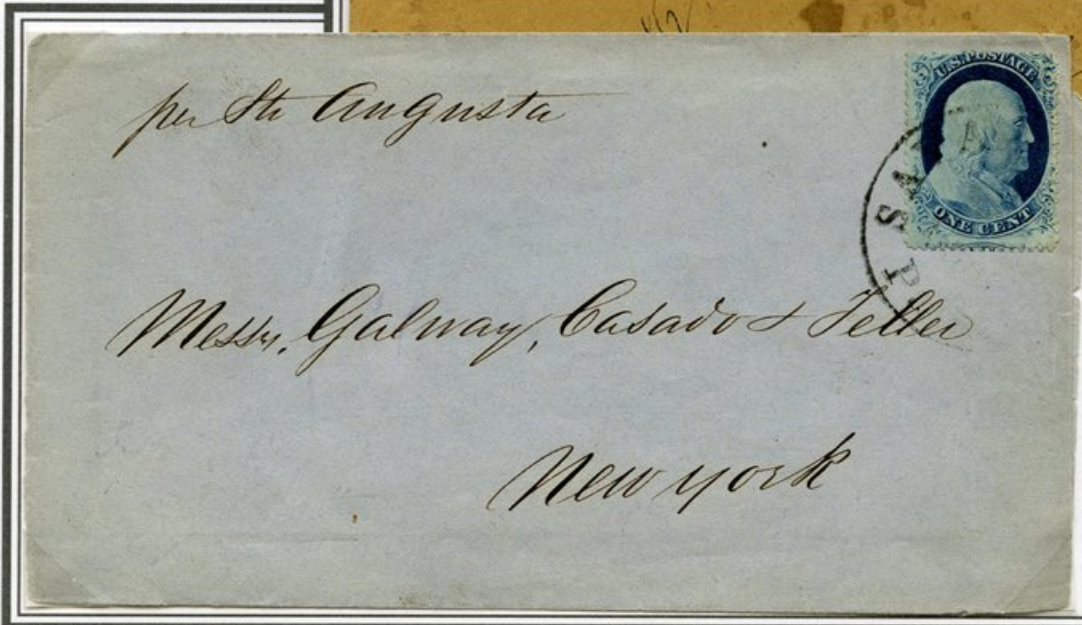 per Str Augusta
U.S. POSTAGE
ONE CENT
SAVA
Messrs, Galway, Casado & Teller
New York